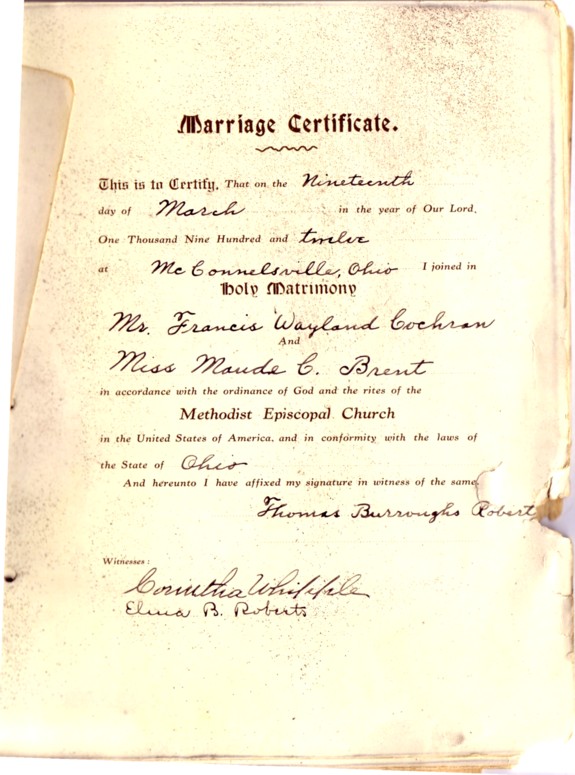 Marriage Certificate.
This is to Certify, That on the Nineteenth
day of March in the year of Our Lord,
One Thousand Nine Hundred and twelve
at McConnelsville, Ohio I joined in
Holy Matrimony
Mr. Francis Wayland Cochran
And
Miss Maude C. Brent
in accordance with the ordinance of God and the rites of the
Methodist Episcopal Church
in the United States of America, and in conformity with the laws of
the State of Ohio
And hereunto I have affixed my signature in witness of the same.
Thomas Burroughs Roberts
Witnesses:
Corintha Whipple
Elma B. Roberts